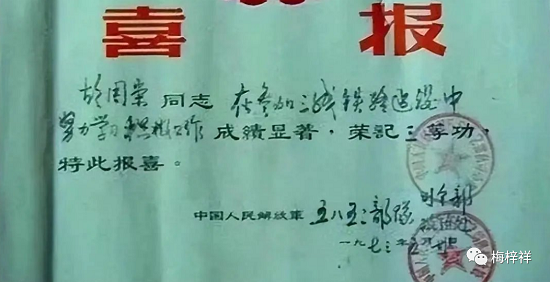 喜报
胡国荣同志在参加三线铁路建设中
努力学习积极工作成绩显著,荣记三等功,
特此报喜。
中国人民解放军五八五三部队
一九七三年五月
梅梓祥